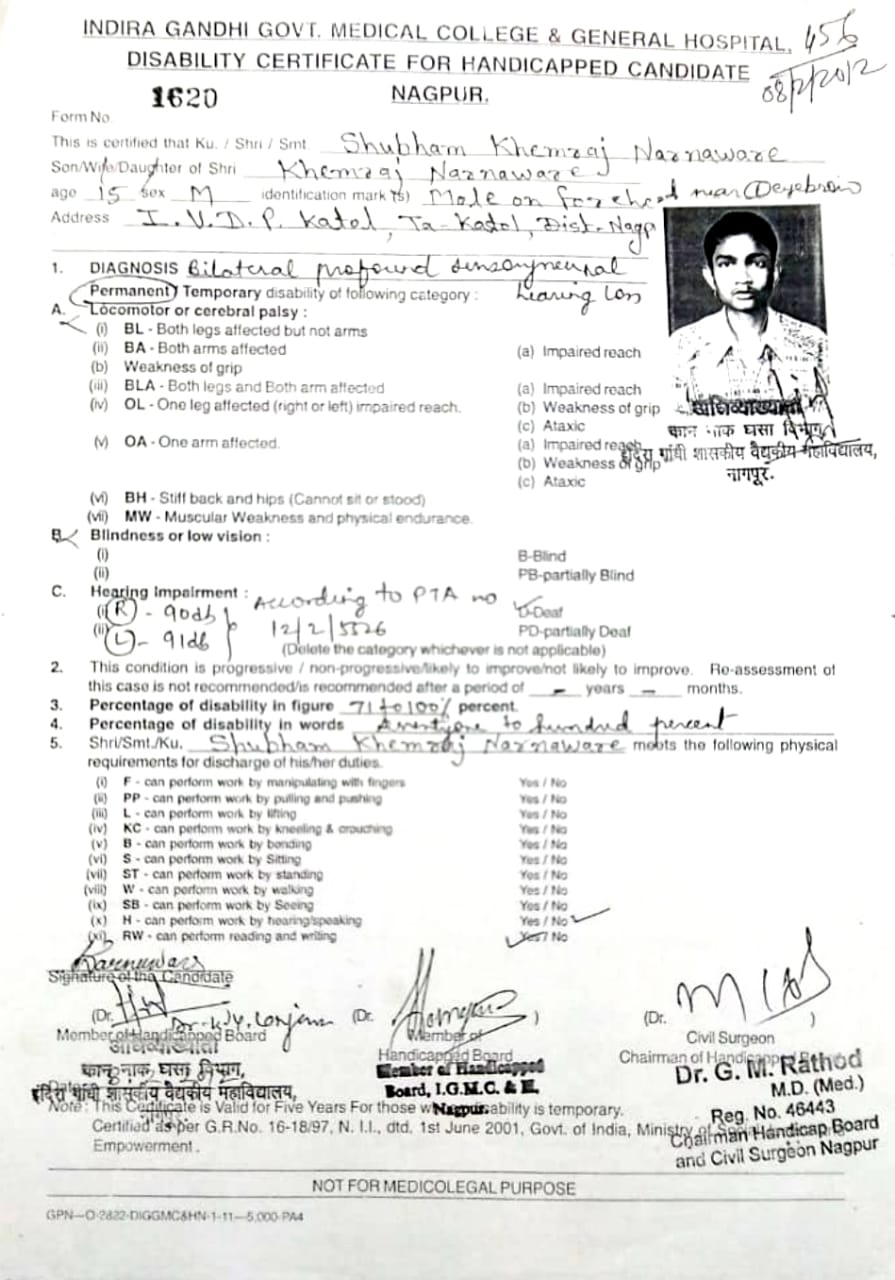 INDIRA GANDHI GOVT. MEDICAL COLLEGE & GENERAL HOSPITAL, 456
DISABILITY CERTIFICATE FOR HANDICAPPED CANDIDATE
08/2/2012
1620 NAGPUR.
Form No.
This is certified that Ku. / Shri / Smt. Shubham Khemraj Narnaware
Son/Wife/Daughter of Shri Khemraj Narnaware
age 15 sex M identification mark (s) Mole on forehead near eyebrow
Address I.V.D.P. Katol, Ta-Katol, Dist-Nagp
1. DIAGNOSIS Bilateral profound sensoryneural
hearing loss
Permanent / Temporary disability of following category :
A. Locomotor or cerebral palsy :
(i) BL - Both legs affected but not arms
(ii) BA - Both arms affected (a) Impaired reach
(b) Weakness of grip
(iii) BLA - Both legs and Both arm affected (a) Impaired reach
(iv) OL - One leg affected (right or left) impaired reach. (b) Weakness of grip
(c) Ataxic
(v) OA - One arm affected. (a) Impaired reach
(b) Weakness of grip
(c) Ataxic
कान नाक घसा विभाग,
इंदिरा गांधी शासकीय वैद्यकीय महाविद्यालय,
नागपूर.
(vi) BH - Stiff back and hips (Cannot sit or stood)
(vii) MW - Muscular Weakness and physical endurance.
B. Blindness or low vision :
(i) B-Blind
(ii) PB-partially Blind
C. Hearing Impairment : According to PTA no
(i) R - 90db D-Deaf
(ii) L - 91db 12/2/5526 PD-partially Deaf
(Delete the category whichever is not applicable)
2. This condition is progressive / non-progressive/likely to improve/not likely to improve. Re-assessment of
this case is not recommended/is recommended after a period of - years - months.
3. Percentage of disability in figure 71 to 100% percent.
4. Percentage of disability in words Seventyone to hundred percent
5. Shri/Smt./Ku. Shubham Khemraj Narnaware meets the following physical
requirements for discharge of his/her duties.
(i) F - can perform work by manipulating with fingers Yes / No
(ii) PP - can perform work by pulling and pushing Yes / No
(iii) L - can perform work by lifting Yes / No
(iv) KC - can perform work by kneeling & crouching Yes / No
(v) B - can perform work by bending Yes / No
(vi) S - can perform work by Sitting Yes / No
(vii) ST - can perform work by standing Yes / No
(viii) W - can perform work by walking Yes / No
(ix) SB - can perform work by Seeing Yes / No
(x) H - can perform work by hearing/speaking Yes / No
(xi) RW - can perform reading and writing Yes / No
Signature of the Candidate
(Dr. (Dr. ) (Dr. )
Member of Handicapped Board Member of Civil Surgeon
Handicapped Board Chairman of Handicapped
कान, नाक, घसा विभाग, Member of Handicapped Dr. G. M. Rathod
इंदिरा गांधी शासकीय वैद्यकीय महाविद्यालय, Board, I.G.M.C. & H. M.D. (Med.)
Nagpur. Reg. No. 46443
Note : This Certificate is Valid for Five Years For those disability is temporary.
Chairman Handicap Board
Certified as per G.R.No. 16-18/97, N. I.I., dtd. 1st June 2001, Govt. of India, Ministry of
and Civil Surgeon Nagpur
Empowerment.
NOT FOR MEDICOLEGAL PURPOSE
GPN—O-2822-DIGGMC&HN-1-11—5,000-PA4